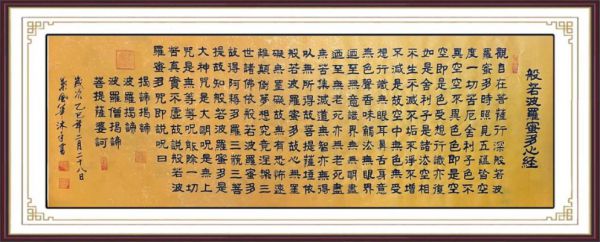 般若波羅蜜多心經
觀自在菩薩行深般若波
羅蜜多時照見五蘊皆空
度一切苦厄舍利子色不
異空空不異色色即是空
空即是色受想行識亦復
如是舍利子是諸法空相
不生不滅不垢不淨不增
不減是故空中無色無受
想行識無眼耳鼻舌身意
無色聲香味觸法無眼界
迺至無意識界無無明盡
迺至無老死亦無老死盡
無苦集滅道無智亦無得
以無所得故菩提薩埵依
般若波羅蜜多故心無罣
礙無罣礙故無有恐怖遠
離顛倒夢想究竟涅槃三
世諸佛依般若波羅蜜多
故得阿耨多羅三藐三菩
提故知般若波羅蜜多是
大神咒是大明咒是無上
咒是無等等咒能除一切
苦真實不虛故說般若波
羅蜜多咒即說咒曰
揭諦揭諦
波羅揭諦
波羅僧揭諦
菩提薩婆訶
歲次乙巳年二月二十八日
沐手書